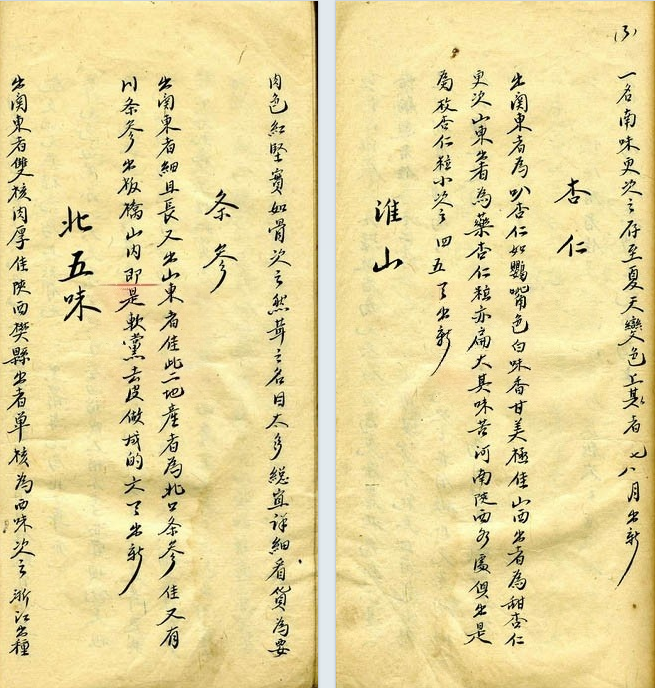 肉色紅堅實如骨次之然茸之名目太多總宜詳細看貨為要
条参
出関東者細且長又出山東者佳此二地產者為北口条参佳又有
川条参出板橋山内即是軟黨去皮做成的六月出新
北五味
出関東者雙核肉厚佳陝西縣出者單核為西味次之浙江出種
(3)
一名南味更次之存至夏天變色上者七八月出新
杏仁
出関東者為叭杏仁如鸚嘴色白味香甘美極佳山西出者為甜杏仁
更次山東出者為藥杏仁粒亦扁大其味苦河南陝西各處俱出是
為杏仁粒小次之四五月出新
淮山